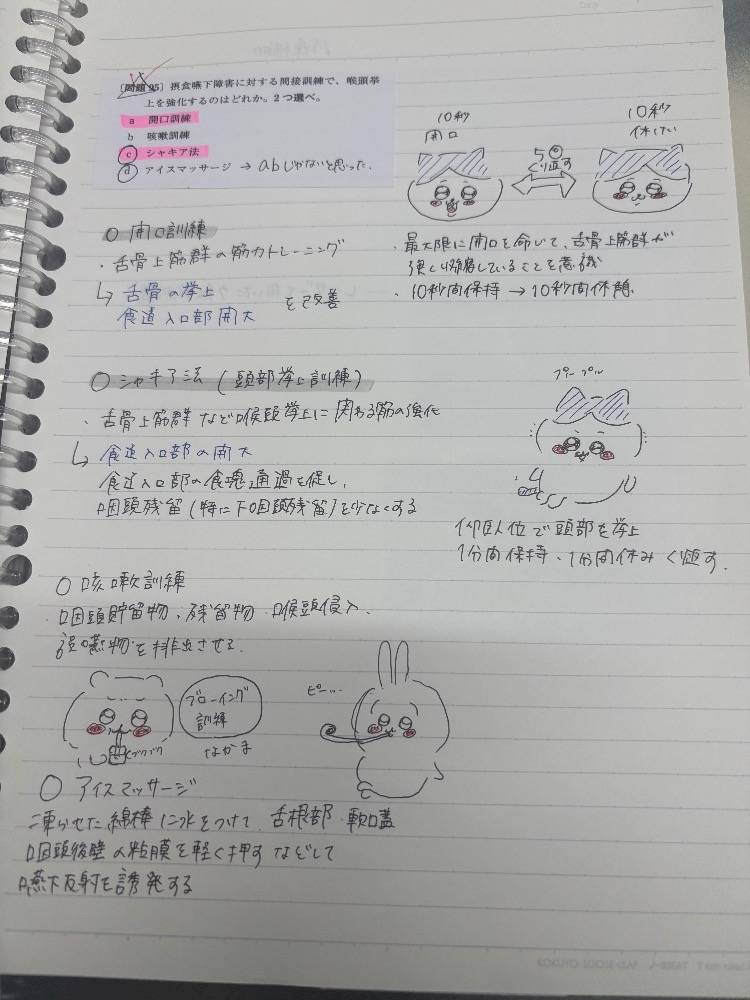 [問題95] 摂食嚥下障害に対する間接訓練で、喉頭挙
上を強化するのはどれか。2つ選べ。
a 開口訓練
b 咳嗽訓練
c シャキア法
d アイスマッサージ → abじゃないと思った.
10秒
開口
5回
くり返す
10秒
休けい
○ 開口訓練
・舌骨上筋群の筋力トレーニング
↳ 舌骨の挙上
食道入口部開大
を改善
・最大限に開口を命じて、舌骨上筋群が
強く収縮していることを意識
・10秒間保持 → 10秒間休憩.
○ シャキア法 (頭部挙上訓練)
・舌骨上筋群など喉頭挙上に関わる筋の強化
↳ 食道入口部の開大
食道入口部の食塊通過を促し、
咽頭残留(特に下咽頭残留)を少なくする
プルプル
仰臥位で頭部を挙上
1分間保持、1分間休み くり返す.
○ 咳嗽訓練
・咽頭貯留物、残留物、喉頭侵入、
誤嚥物を排出させる.
ブローイング
訓練
なかま
ブクブク
ピー…
○ アイスマッサージ
凍らせた綿棒に水をつけて、舌根部、軟口蓋
咽頭後壁の粘膜を軽く押すなどして
嚥下反射を誘発する